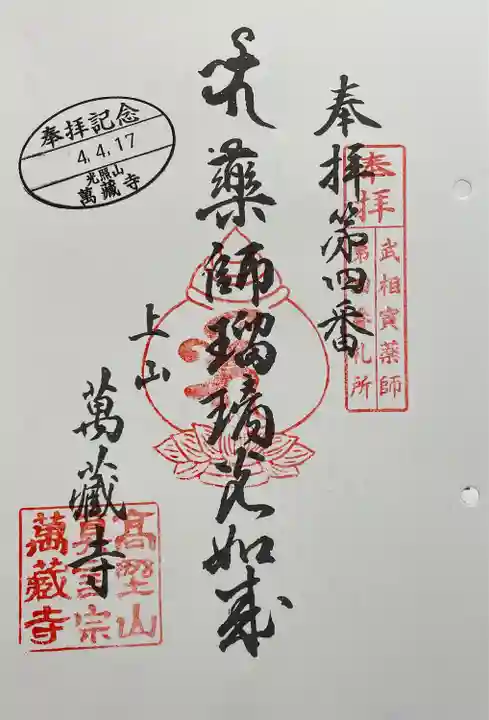 奉拝
武相寅薬師
第四番札所
奉拝第四番
薬師瑠璃光如来
上山
萬藏寺
奉拝記念
4.4.17
光照山
萬藏寺
高野山
真言宗
萬藏寺